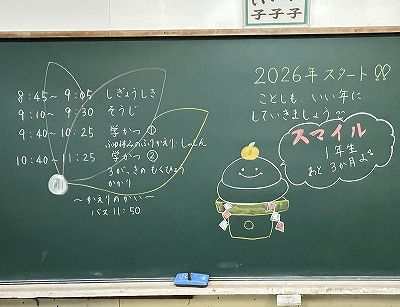 子子子
8:45～9:05 しぎょうしき
9:10～9:30 そうじ
9:40～10:25 学かつ①
ふゆ休みのふりかえり・しゅくだい
10:40～11:25 学かつ②
3がっきのもくひょう
かかり
～かえりのかい～
バス 11:50
2026年スタート!!
ことしも、いい年に
していきましょう～
スマイル
1年生
あと 3か月よ